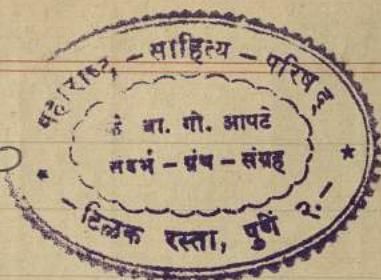 महाराष्ट्र - साहित्य - परिषद्
कै वा. गो. आपटे
संदर्भ - ग्रंथ - संग्रह
* - टिळक रस्ता, पुणें २. - *